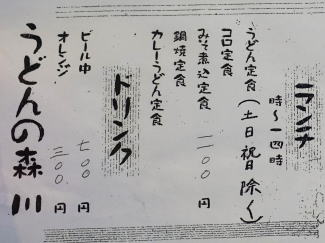 ランチ
時〜一四時
うどん定食(土日祝日除く)
コロ定食
みそ煮込定食 一一〇〇円
鍋焼定食
カレーうどん定食
ドリンク
ビール中 七〇〇円
オレンジ 三〇〇円
うどんの森川